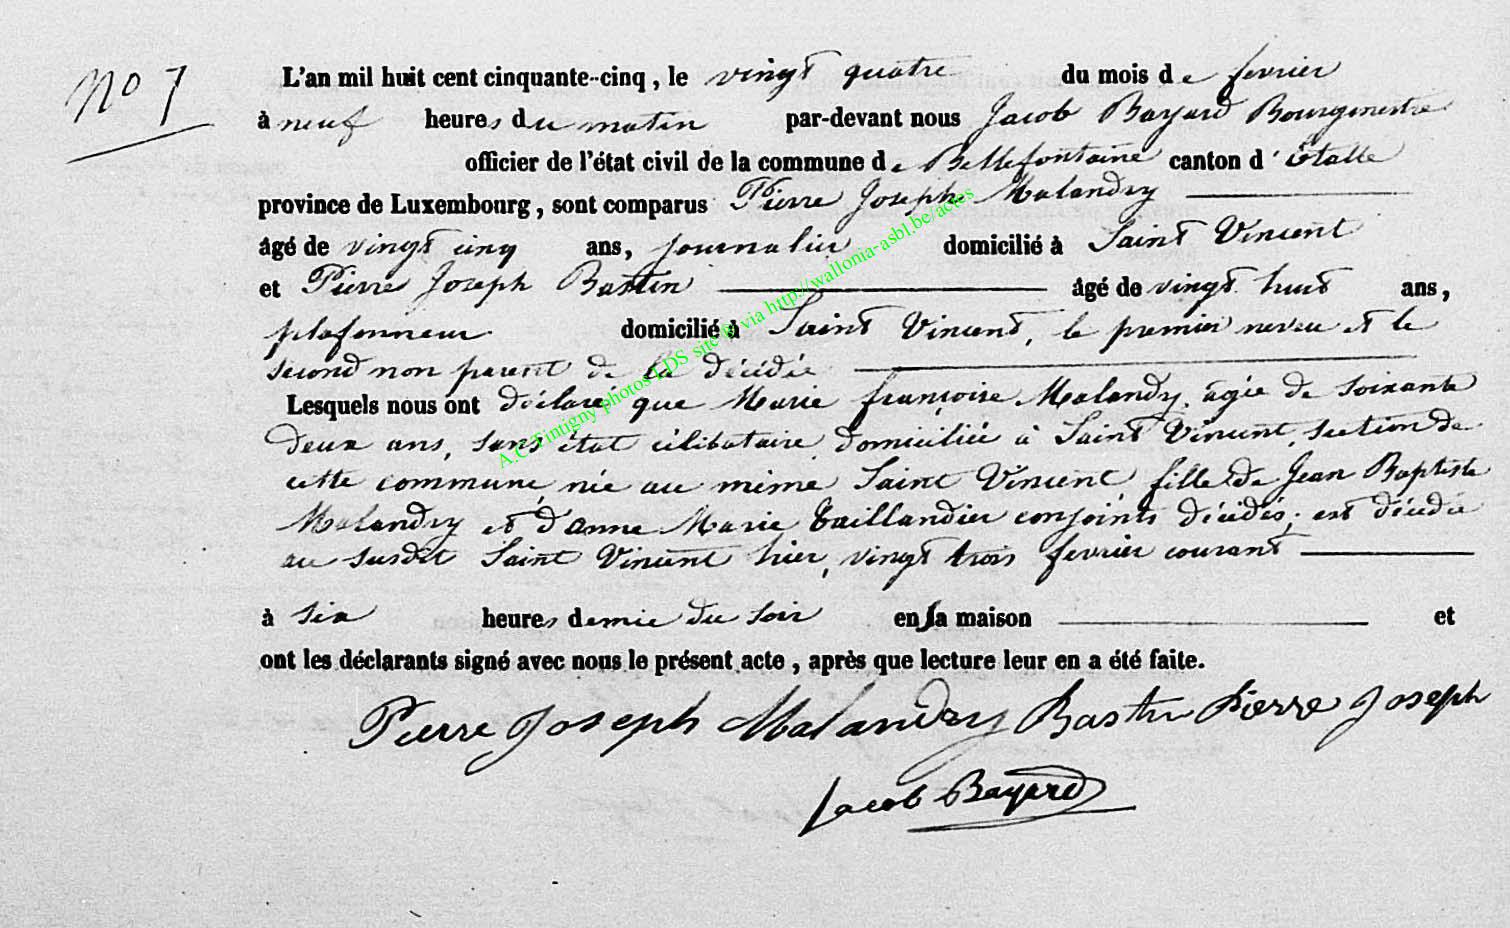 No 7
L'an mil huit cent cinquante-cinq, le vingt quatre du mois de fevrier
à neuf heures du matin par-devant nous Jacob Bayard Bourgmestre
officier de l'état civil de la commune de Bellefontaine canton d'étalle
province de Luxembourg, sont comparus Pierre Joseph Malandry
âgé de vingt cinq ans, journalier domicilié à Saint Vincent
et Pierre Joseph Bastin âgé de vingt huit ans,
plafonneur domicilié à Saint Vincent, le premier neveu et le
second non parent de la décédée
Lesquels nous ont déclaré que Marie françoise Malandry, agée de soixante
deux ans, sans état célibataire domiciliée à Saint Vincent, section de
cette commune, née au même Saint Vincent, fille de Jean Baptiste
Malandry et d'anne Marie Taillandier conjoints décédés; est décédée
au susdit Saint Vincent hier, vingt trois fevrier courant
à six heures demie du soir en sa maison et
ont les déclarants signé avec nous le présent acte, après que lecture leur en a été faite.
Pierre Joseph Malandry Bastin Pierre Joseph
Jacob Bayard
A.C. Tintigny photos EDS site @ via http://wallonia-asbl.be/actes